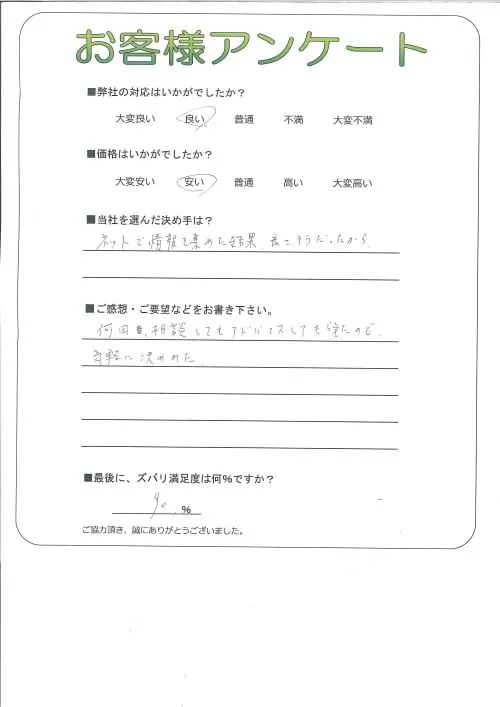 お客様アンケート
■弊社の対応はいかがでしたか？
大変良い 良い 普通 不満 大変不満
■価格はいかがでしたか？
大変安い 安い 普通 高い 大変高い
■当社を選んだ決め手は？
ネットで情報を集めた結果、良さそうだったから
■ご感想・ご要望などをお書き下さい。
何回も相談してもアドバイスしてもらえたので、
気軽に決めれた。
■最後に、ズバリ満足度は何％ですか？
90 %
ご協力頂き、誠にありがとうございました。